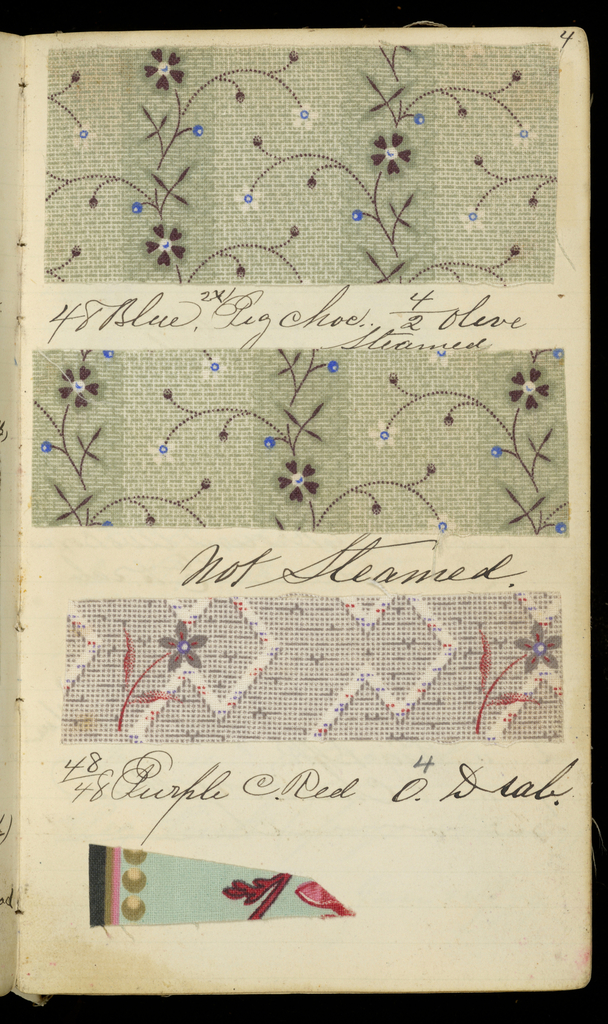 4
48 Blue, 2x1 Pig Choc. 4/2 Olive
Steamed
Not Steamed.
48/48 Purple C. Red 4 O. Drab.